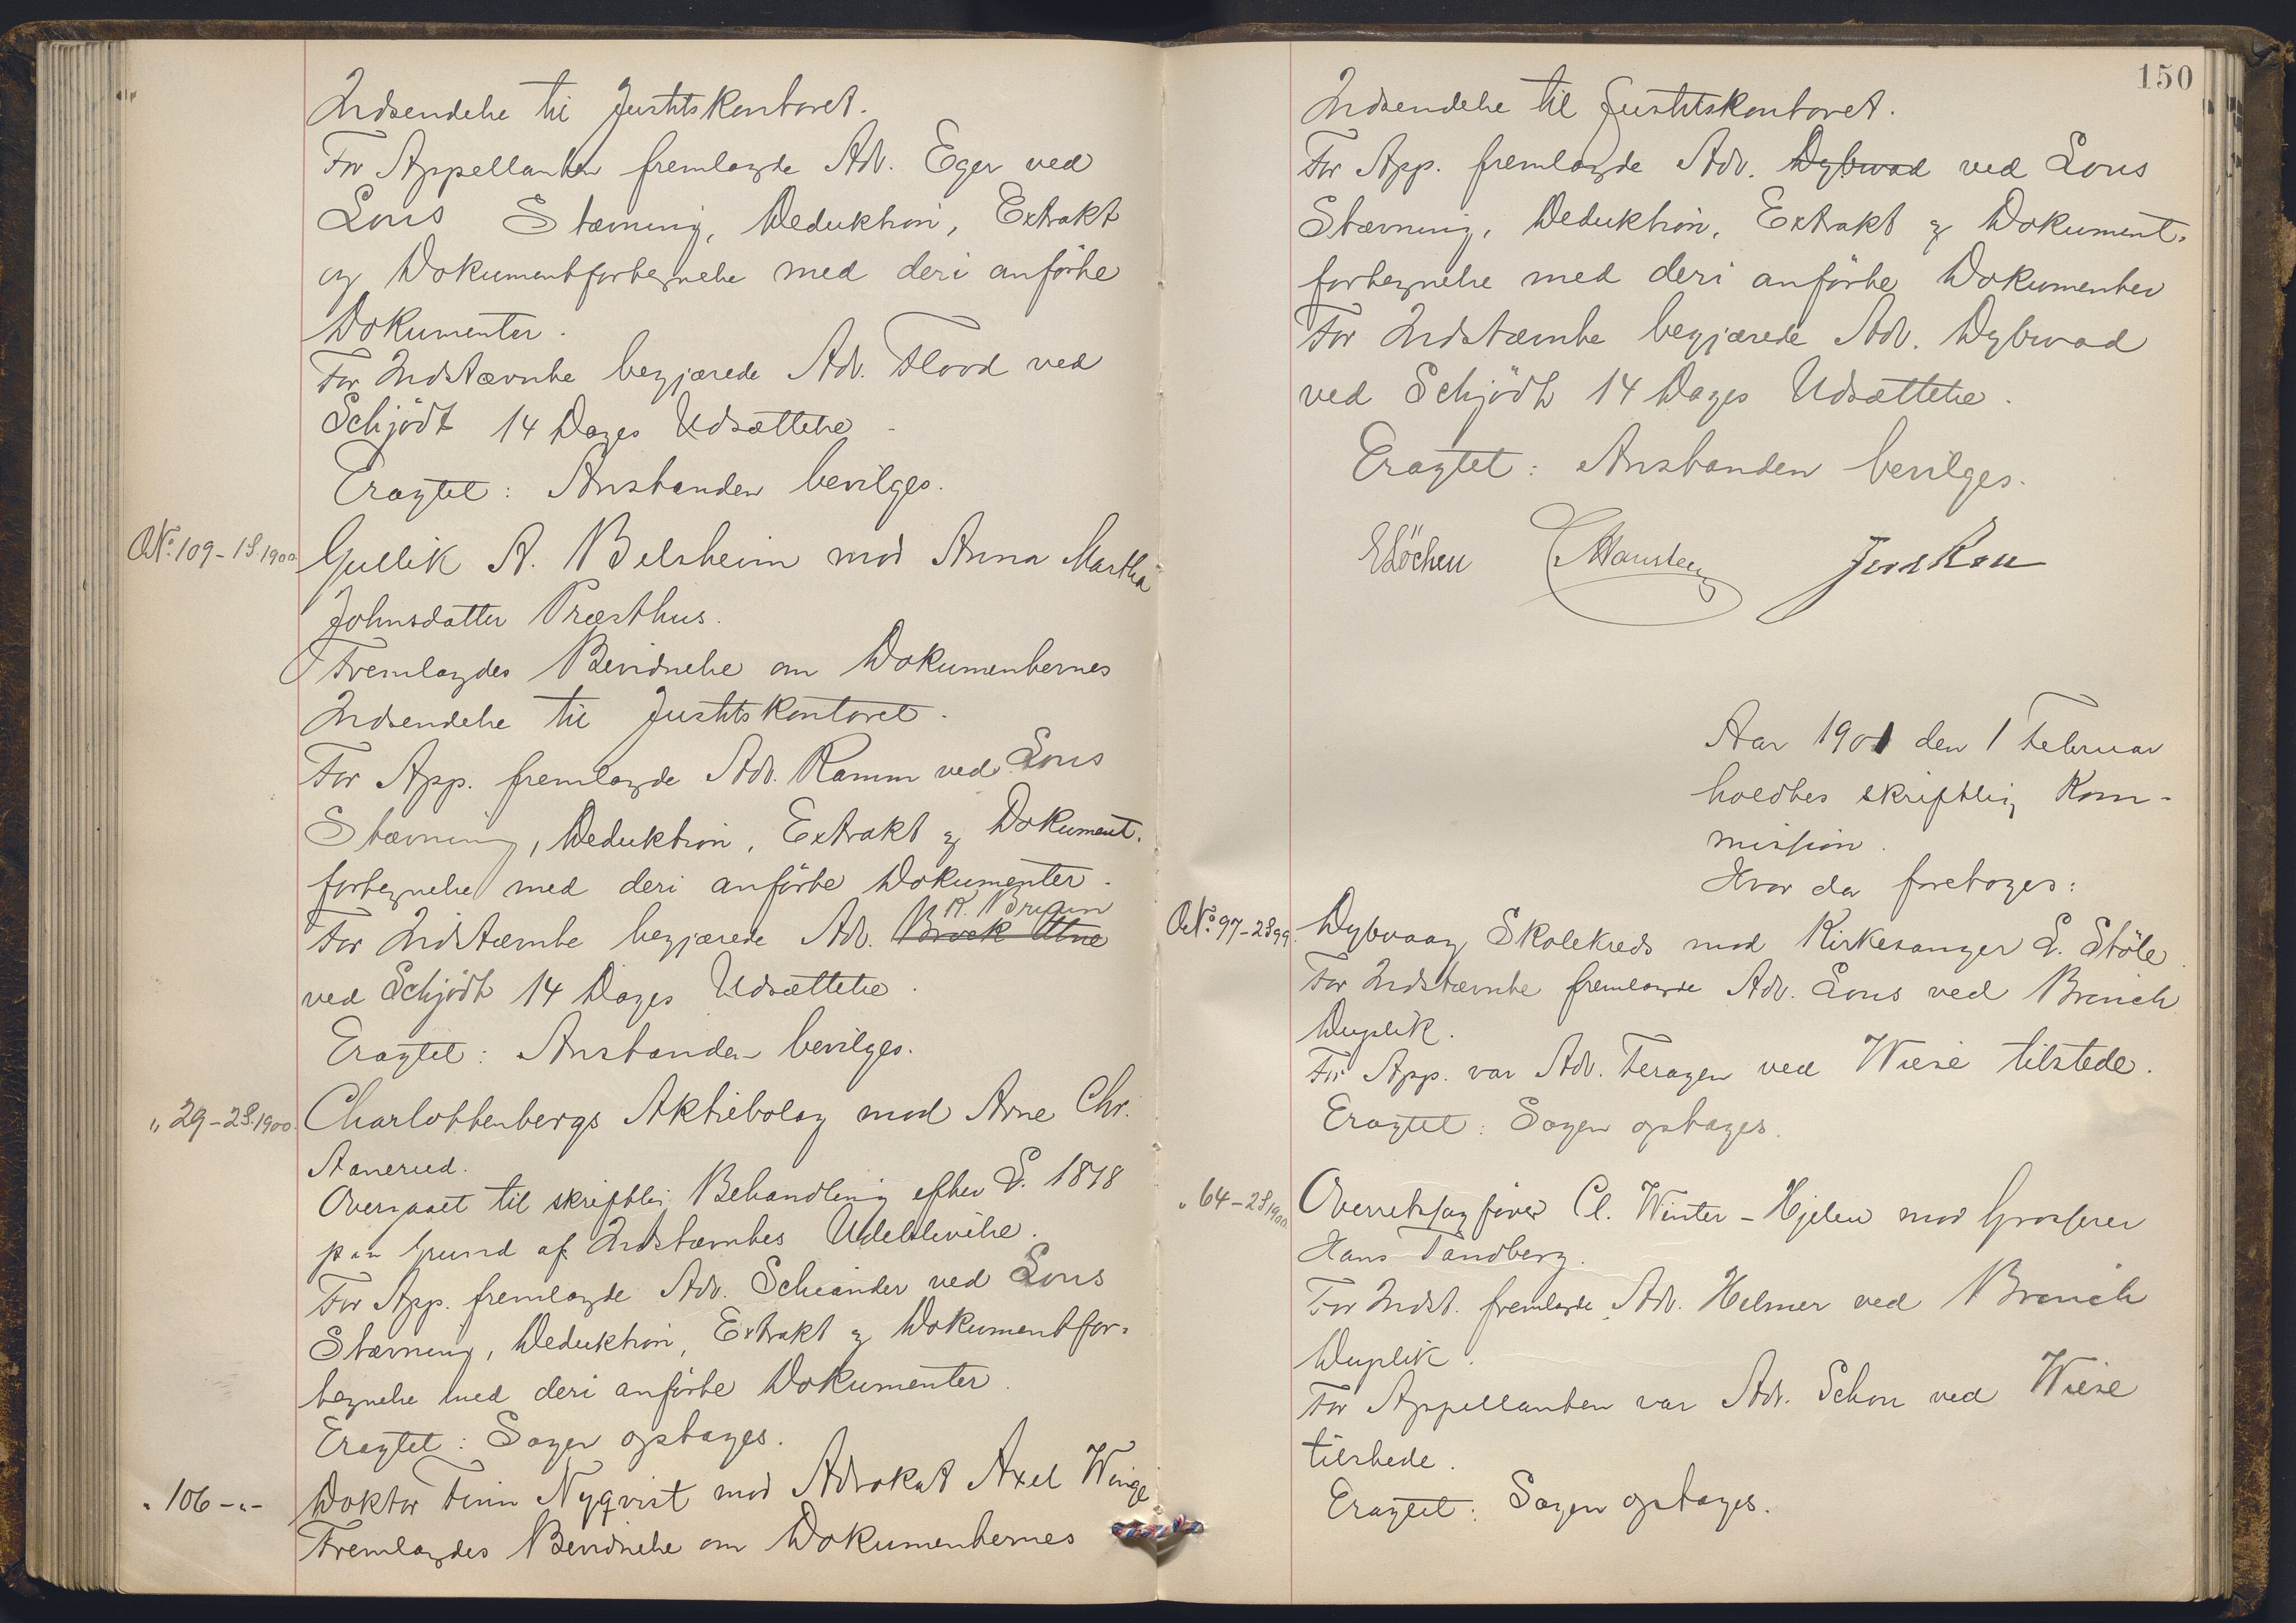 Indsendelse til Justitskontoret.
For Appellanten fremlagde Adv. Eger ved
Lous Stævning, Deduktion, Extrakt
og Dokumentfortegnelse med deri anførte
Dokumenter.
For Indstævnte begjærede Adv. Flood ved
Schjödt 14 Dages Udsættelse.
Eragtet: Anstanden bevilges.
No. 109 - 1S. 1900. Gullik A. Belsheim mod Anna Martha
Johnsdatter Præsthus.
Fremlagdes Bevidnelse om Dokumenternes
Indsendelse til Justitskontoret.
For App. fremlagde Adv. Ramm ved Lous
Stævning, Deduktion, Extrakt og Dokument-
fortegnelse med deri anførte Dokumenter.
K. Bruun
For Indstævnte begjærede Adv. Brock Utne
ved Schjödt 14 Dages Udsættelse.
Eragtet: Anstanden bevilges.
" 29 - 2S. 1900. Charlottenbergs Aktiebolag mod Arne Chr.
Aanerud.
Overgaaet til skriftlig Behandling efter L. 1818
paa Grund af Indstævntes Udeblivelse.
For App. fremlagde Adv. Scheander ved Lous
Stævning, Deduktion, Extrakt og Dokumentfor-
tegnelse med deri anførte Dokumenter.
Eragtet: Sagen optages.
" 106 - " - Doktor Finn Nyqvist mod Advokat Axel Winge
Fremlagdes Bevidnelse om Dokumenternes
150
Indsendelse til Justitskontoret.
For App. fremlagde Adv. Dybwad ved Lous
Stævning, Deduktion, Extrakt og Dokument-
fortegnelse med deri anførte Dokumenter
For Indstævnte begjærede Adv. Dybwad
ved Schjödt 14 Dages Udsættelse.
Eragtet: Anstanden bevilges.
E Löchen
Aar 1901 den 1 Februar
holdtes skriftlig Kom-
mission.
Hvor da foretoges:
No. 97 - 2S 99. Dybvaag Skolekreds mod Kirkesanger L. Støle.
For Indstævnte fremlagde Adv. Lous ved Bruich
Duplik.
For App. var Adv. Feragen ved Wiese tilstede.
Eragtet: Sagen optages.
" 64 - 2S 1900. Overretssagfører Cl. Winter-Hjelm mod Grosserer
Hans Tandberg.
For Indst. fremlagde Adv. Helmer ved Bruich
Duplik.
For Appellanten var Adv. Schou ved Wiese
tilstede.
Eragtet: Sagen optages.